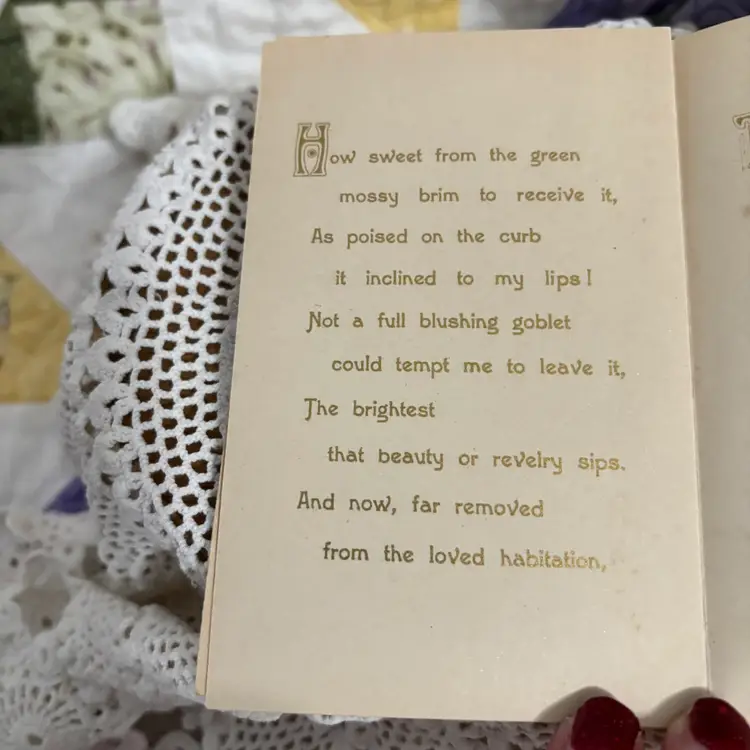 How sweet from the green
mossy brim to receive it,
As poised on the curb
it inclined to my lips!
Not a full blushing goblet
could tempt me to leave it,
The brightest
that beauty or revelry sips.
And now, far removed
from the loved habitation,